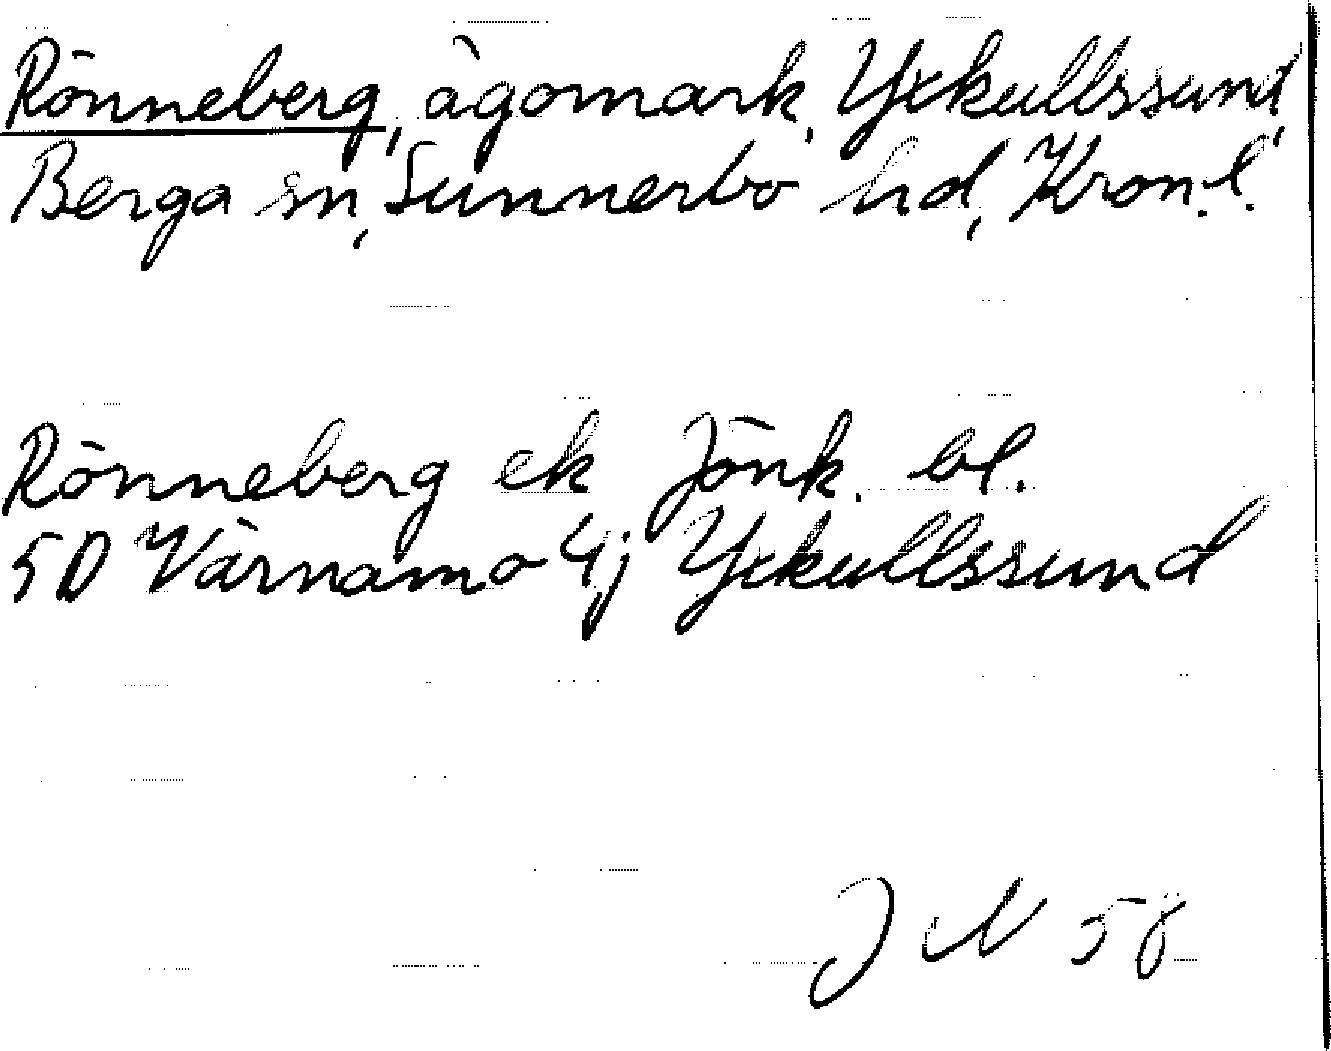 Rönneberg, ägomark, Yxkullssund,
Berga sn, Sunnerbo hd, Kron.l.
Rönneberg ek Jönk. bl.
5D Värnamo 4j Yxkullssund
JN 58